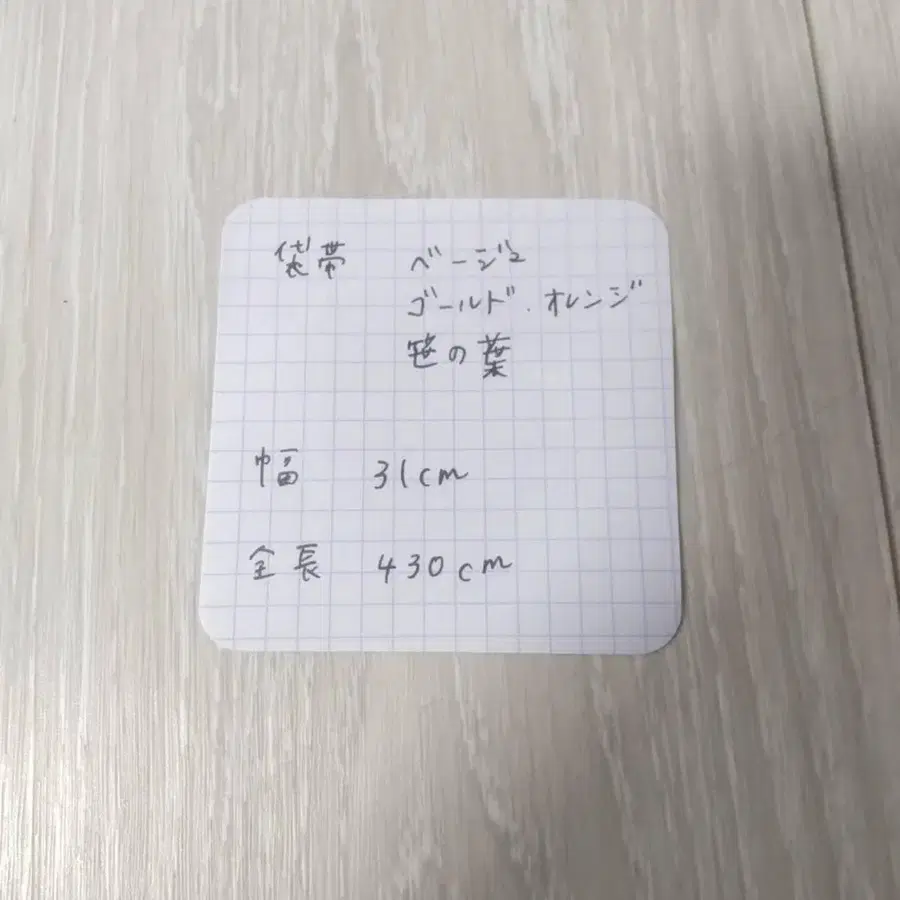 袋帯 ベージュ
ゴールド.オレンジ
笹の葉
幅 31cm
全長 430cm